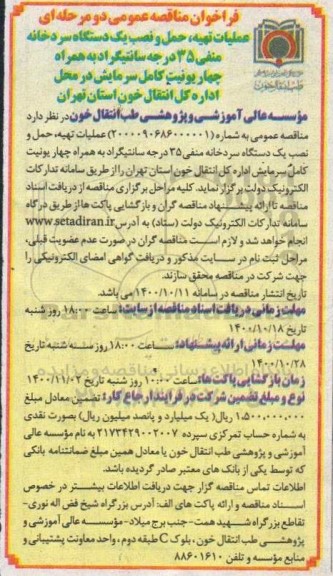 فراخوان مناقصه عمومی دو مرحله ای
عملیات تهیه، حمل و نصب یک دستگاه سردخانه
منفی ۳۵ درجه سانتیگراد به همراه
چهار یونیت کامل سرمایش در محل
اداره کل انتقال خون استان تهران
مؤسسه عالی آموزشی و پژوهشی طب انتقال خون در نظر دارد
مناقصه عمومی به شماره (۲۰۰۰۰۹۰۶۸۶۰۰۰۰۰۱) عملیات تهیه، حمل و
نصب یک دستگاه سردخانه منفی ۳۵ درجه سانتیگراد به همراه چهار یونیت
کامل سرمایش اداره کل انتقال خون استان تهران را از طریق سامانه تدارکات
الکترونیک دولت برگزار نماید. کلیه مراحل برگزاری مناقصه از دریافت اسناد
مناقصه تا ارائه پیشنهاد مناقصه گران و بازگشایی پاکت ها از طریق درگاه
سامانه تدارکات الکترونیک دولت (ستاد) به آدرس www.setadiran.ir
انجام خواهد شد و لازم است مناقصه گران در صورت عدم عضویت قبلی،
مراحل ثبت نام در سایت مذکور و دریافت گواهی امضای الکترونیکی را
جهت شرکت در مناقصه محقق سازند.
تاریخ انتشار مناقصه در سامانه ۱۴۰۰/۱۰/۱۱ می باشد.
مهلت زمانی دریافت اسناد مناقصه از سایت: ساعت ۱۸:۰۰ روز شنبه
تاریخ ۱۴۰۰/۱۰/۱۸
مهلت زمانی ارائه پیشنهاد: ساعت ۱۸:۰۰ روز سه شنبه تاریخ
۱۴۰۰/۱۰/۲۸
زمان بازگشایی پاکت ها: ساعت ۱۰:۰۰ روز شنبه تاریخ ۱۴۰۰/۱۱/۰۲
نوع و مبلغ تضمین شرکت در فرایند ارجاع کار: تضمین معادل مبلغ
۱،۵۰۰،۰۰۰،۰۰۰ ریال( یک میلیارد و پانصد میلیون ریال) بصورت نقدی
به شماره حساب تمرکزی سپرده ۲۱۷۳۴۲۹۰۰۲۰۰۷ به نام مؤسسه عالی
آموزشی و پژوهشی طب انتقال خون یا معادل همین مبلغ ضمانتنامه بانکی
که توسط یکی از بانک های معتبر صادر گردیده باشد.
اطلاعات تماس مناقصه گزار جهت دریافت اطلاعات بیشتر در خصوص
اسناد مناقصه و ارائه پاکت های الف: آدرس بزرگراه شیخ فضل اله نوری-
تقاطع بزرگراه شهید همت- جنب برج میلاد- مؤسسه عالی آموزشی و
پژوهشی طب انتقال خون، بلوک C طبقه دوم، واحد معاونت پشتیبانی و
منابع مؤسسه و تلفن ۸۸۶۰۱۶۱۰